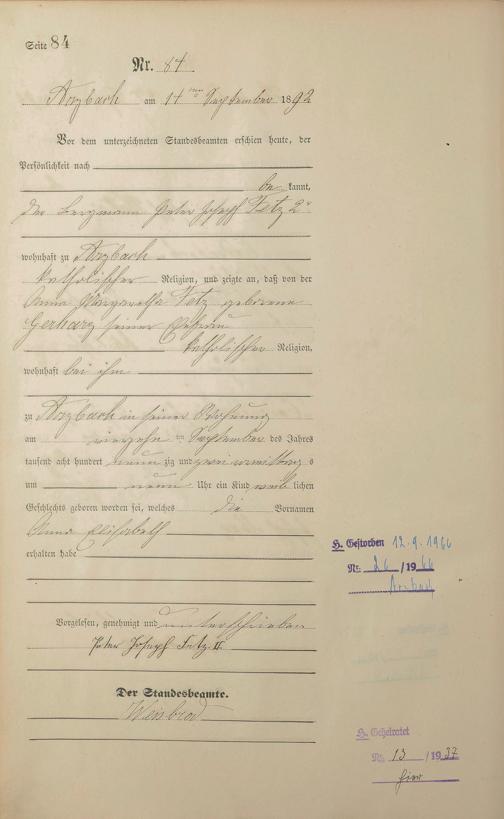 Seite 84
Nr. 84
Arzbach am 14ten September 1892
Vor dem unterzeichneten Standesbeamten erschien heute, der
Persönlichkeit nach
be kannt,
der Bergmann Peter Joseph Fetz 2r
wohnhaft zu Arzbach
katholischer Religion, und zeigte an, daß von der
Anna Margaretha Fetz geborene
Gerharz seiner Ehefrau
katholischer Religion,
wohnhaft bei ihm
zu Arzbach in seiner Wohnung
am vierzehnten September des Jahres
tausend acht hundert neun zig und zwei vormittags
um neun Uhr ein Kind weib lichen
Geschlechts geboren worden sei, welches die Vornamen
Anna Elisabeth
erhalten habe
Vorgelesen, genehmigt und unterschrieben
Peter Joseph Fetz II.
Der Standesbeamte.
Weisbrod
H. Gestorben 12.9.1966
Nr. 26 /1966
Arzbach
H. Geheiratet
Nr. 13 /1937
hier